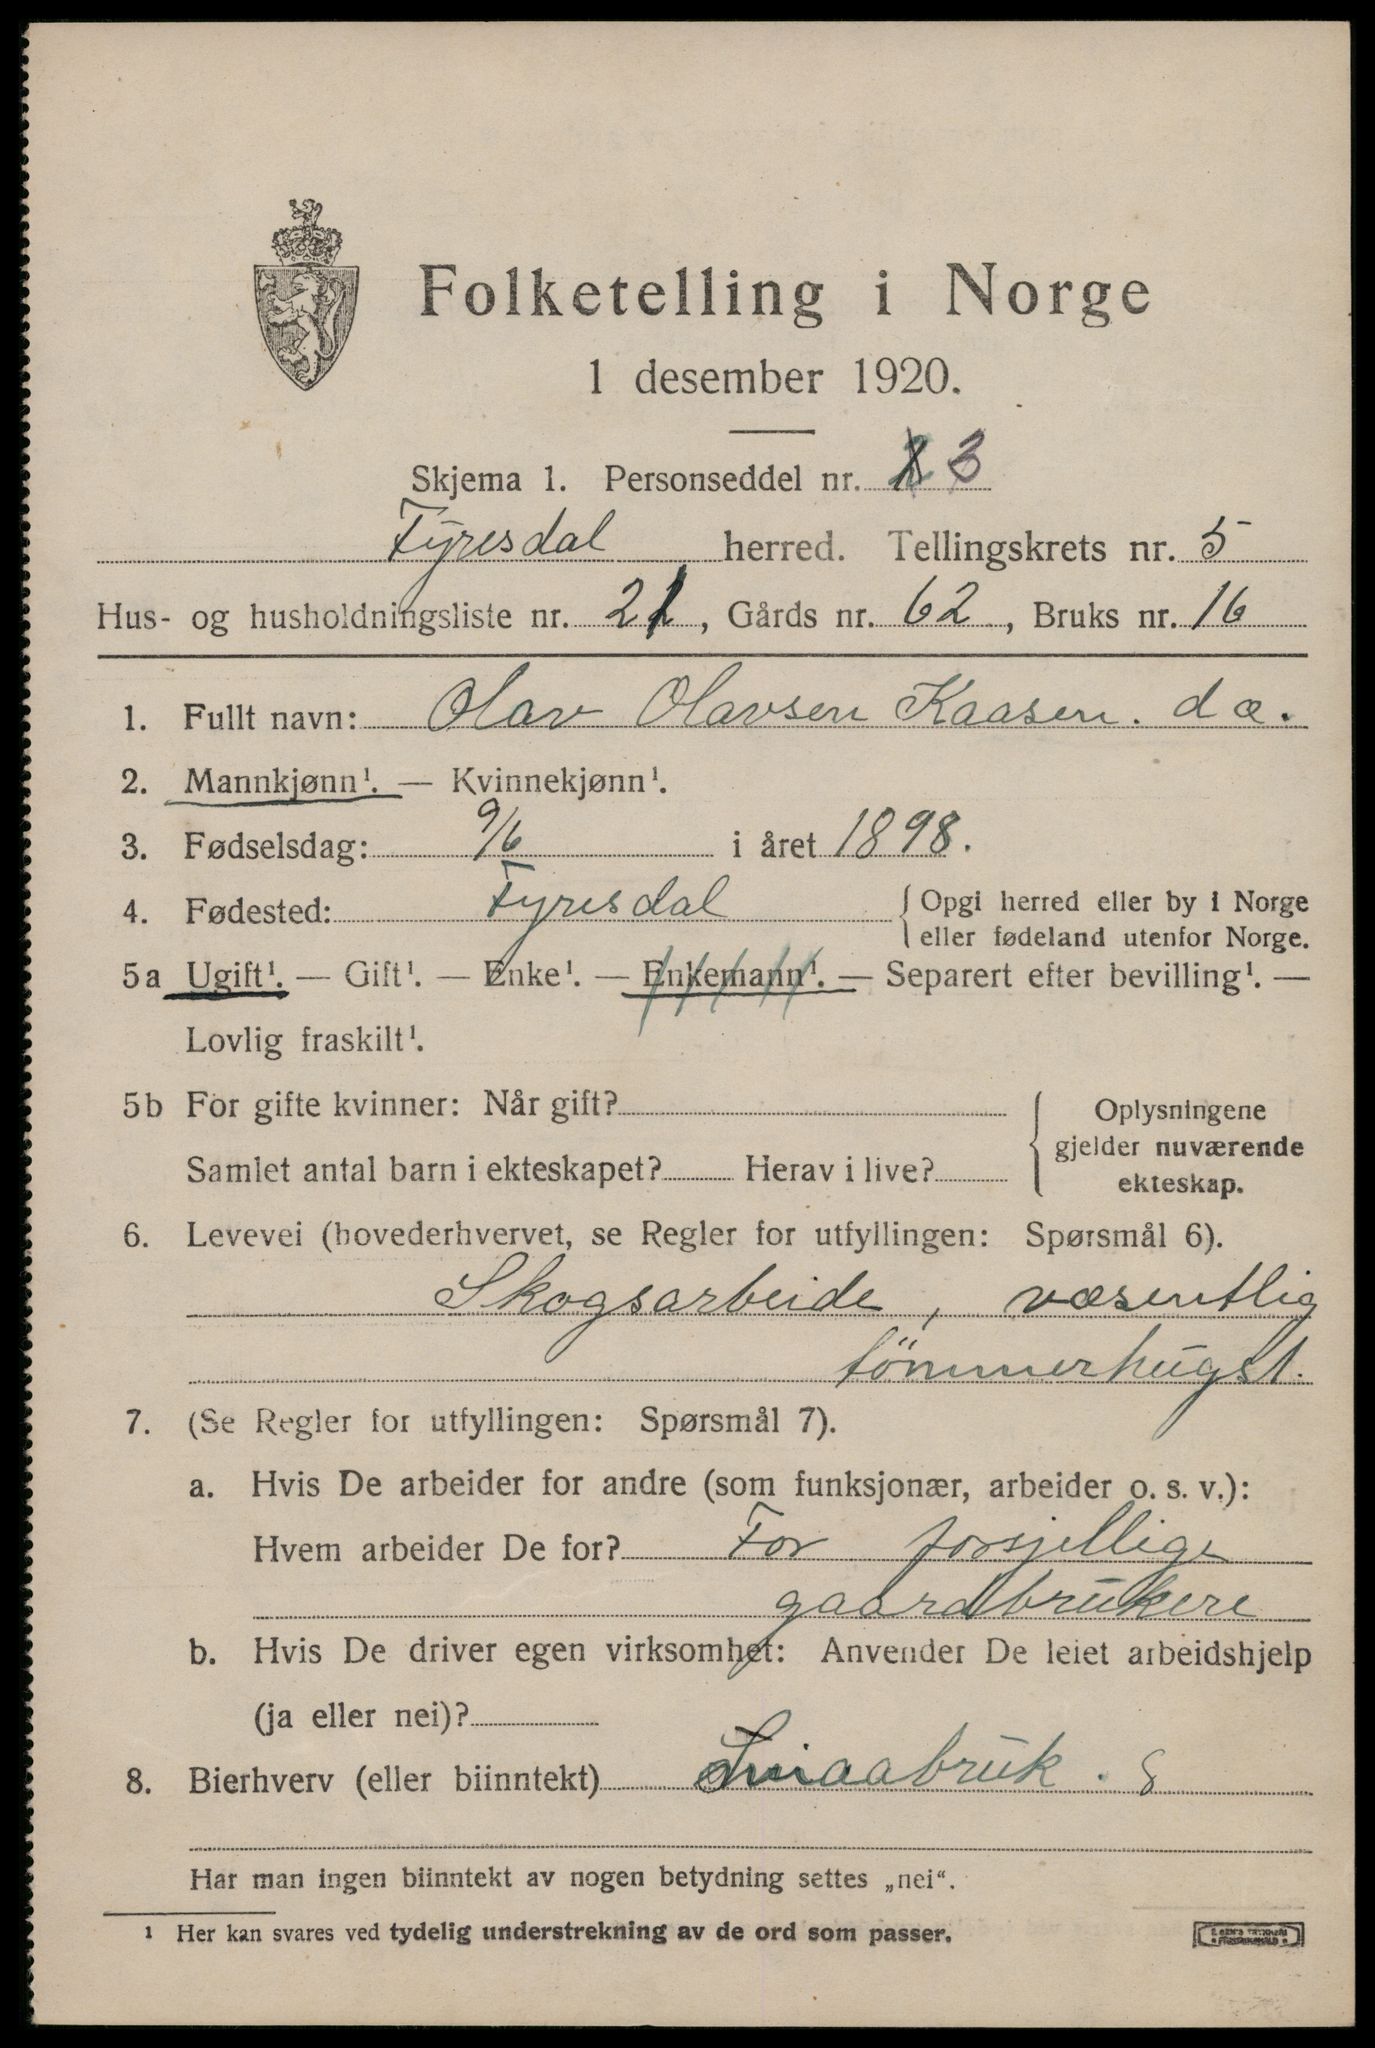 Folketelling i Norge
1 desember 1920.
Skjema 1. Personseddel nr. 3
Fyresdal herred. Tellingskrets nr. 5
Hus- og husholdningsliste nr. 21, Gårds nr. 62, Bruks nr. 16
1. Fullt navn: Olav Olavsen Kaasen. d æ.
2. Mannkjønn¹. — Kvinnekjønn¹.
3. Fødselsdag: 9/6 i året 1898.
4. Fødested: Fyresdal { Opgi herred eller by i Norge
eller fødeland utenfor Norge.
5a Ugift¹. — Gift¹. — Enke¹. — Enkemann¹. — Separert efter bevilling¹. —
Lovlig fraskilt¹.
5b For gifte kvinner: Når gift?
Samlet antal barn i ekteskapet? Herav i live?
{ Oplysningene
gjelder nuværende
ekteskap.
6. Levevei (hovederhvervet, se Regler for utfyllingen: Spørsmål 6).
Skogsarbeide, væsentlig
tömmerhugst.
7. (Se Regler for utfyllingen: Spørsmål 7).
a. Hvis De arbeider for andre (som funksjonær, arbeider o. s. v.):
Hvem arbeider De for? For forsjellige
gaardbrukere
b. Hvis De driver egen virksomhet: Anvender De leiet arbeidshjelp
(ja eller nei)?
8. Bierhverv (eller biinntekt) Smaabruk. 8
Har man ingen biinntekt av nogen betydning settes „nei“.
1 Her kan svares ved tydelig understrekning av de ord som passer.